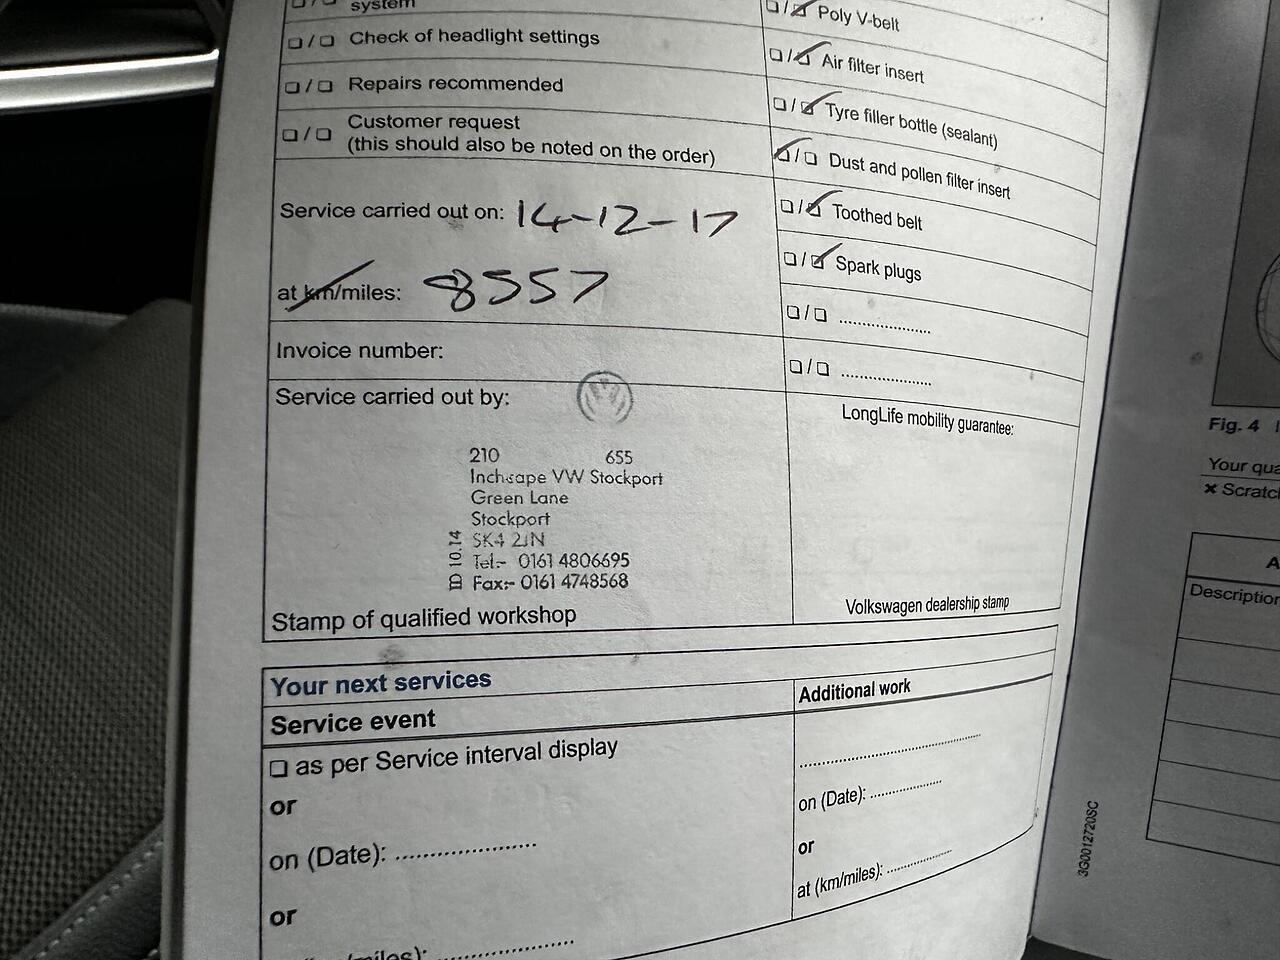 system
☐ / ☐ Check of headlight settings
☐ / ☐ Repairs recommended
☐ / ☐ Customer request
(this should also be noted on the order)
Service carried out on: 14-12-17
at km/miles: 8557
Invoice number:
Service carried out by:
210 655
Inchcape VW Stockport
Green Lane
Stockport
SK4 2JN
Tel:- 0161 4806695
Fax:- 0161 4748568
10.14
Stamp of qualified workshop
☐ / ☑ Poly V-belt
☐ / ☑ Air filter insert
☐ / ☑ Tyre filler bottle (sealant)
☑ / ☐ Dust and pollen filter insert
☐ / ☑ Toothed belt
☐ / ☑ Spark plugs
☐ / ☐ ....................
☐ / ☐ ....................
LongLife mobility guarantee:
Volkswagen dealership stamp
Your next services
Service event
☐ as per Service interval display
or
on (Date): ......................
or
/miles): ......................
Additional work
........................................
on (Date): ................
or
at (km/miles): ..............
3G0012720SC
Fig. 4
Your qua
× Scratc
A
Description